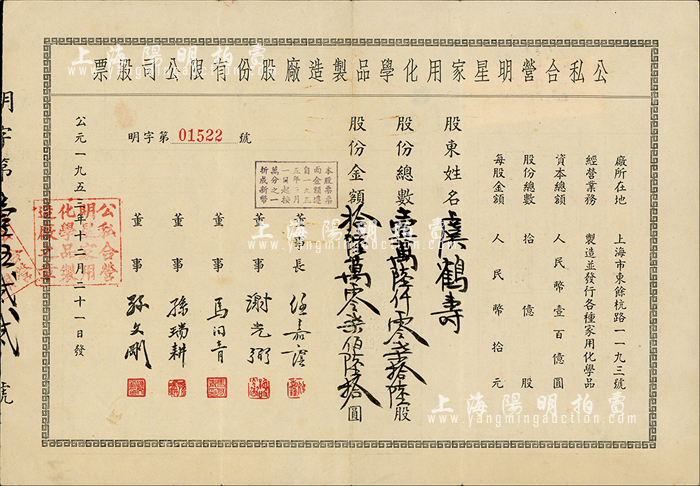 公私合營明星家用化學品製造廠股份有限公司股票
廠所在地 上海市東餘杭路一一九三號
經營業務 製造並發行各種家用化學品
資本總額 人民幣壹百億圓
股份總數 拾億股
每股金額 人民幣拾元
股東姓名 虞鶴壽
股份總數 壹萬陸仟零柒拾陸股
股份金額 拾陸萬零柒佰陸拾圓
本股票票
面金額遵
自一九五
五年三月
一日起按
萬分之一
折成新幣
明字第 01522 號
董事長 任嘉
董事 謝光弼
董事 馬
董事 孫瑞耕
董事 孫文剛
公元一九五三年十二月二十一日發
公私合營
明星家用
化學品製
造廠
明字第壹伍貳貳號
上海陽明拍賣
www.yangmingauction.com
上海陽明拍賣
www.yangmingauction.com